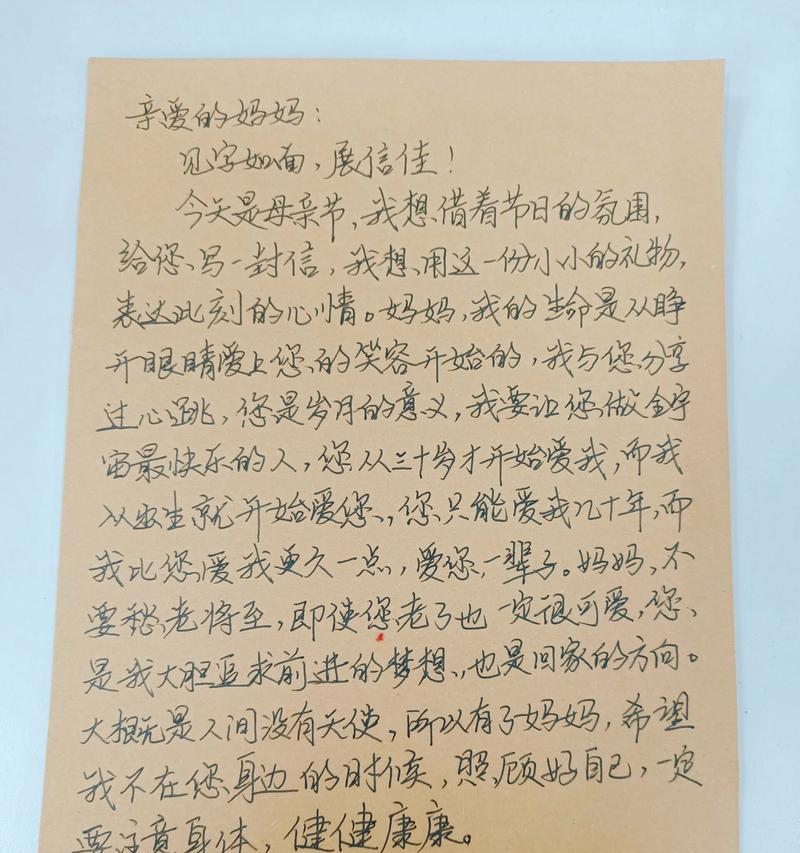 亲爱的妈妈：
见字如面，展信佳！
今天是母亲节，我想借着节日的氛围，
给您写一封信，我想用这一份小小的礼物，
表达此刻的心情。妈妈，我的生命是从睁
开眼睛爱上您的笑容开始的，我与您分享
过心跳，您是岁月的意义，我要让您做全宇
宙最快乐的人，您从三十岁才开始爱我，而我
从出生就开始爱您，您只能爱我几十年，而
我比您爱我更久一点，爱您一辈子。妈妈，不
要愁老将至，即使您老了也一定很可爱，您
是我大胆追求前进的梦想，也是回家的方向。
大概是人间没有天使，所以有了妈妈，希望
我不在您身边的时候，照顾好自己，一定
要注意身体，健健康康。